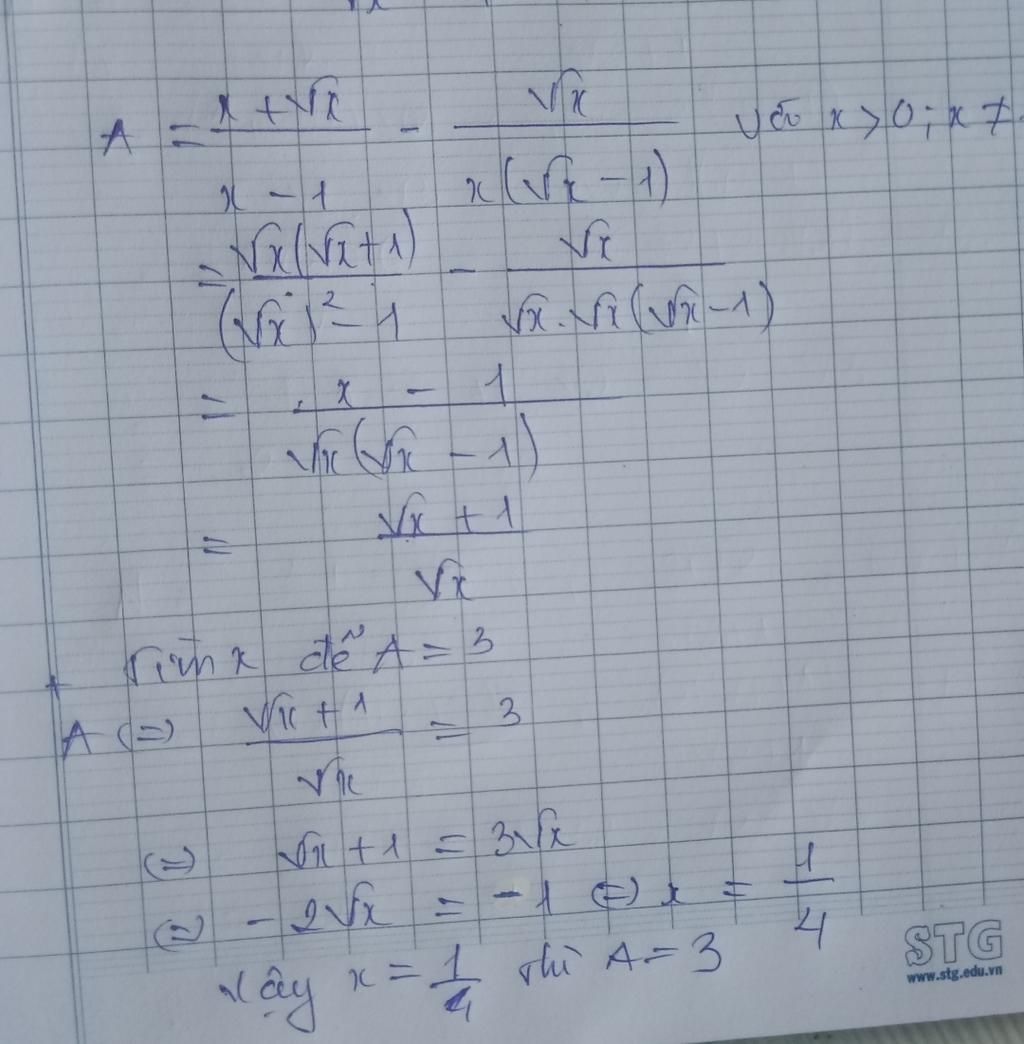 A = \frac{x + \sqrt{x}}{x - 1} - \frac{\sqrt{x}}{x(\sqrt{x} - 1)} với x > 0 ; x ≠
= \frac{\sqrt{x}(\sqrt{x} + 1)}{(\sqrt{x})^2 - 1} - \frac{\sqrt{x}}{\sqrt{x} . \sqrt{x}(\sqrt{x} - 1)}
= \frac{x - 1}{\sqrt{x}(\sqrt{x} - 1)}
= \frac{\sqrt{x} + 1}{\sqrt{x}}
+ Tìm x để A = 3
A (=) \frac{\sqrt{x} + 1}{\sqrt{x}} = 3
(=) \sqrt{x} + 1 = 3\sqrt{x}
(=) - 2\sqrt{x} = - 1 (=) x = \frac{1}{4}
Vậy x = \frac{1}{4} thì A = 3
STG
www.stg.edu.vn